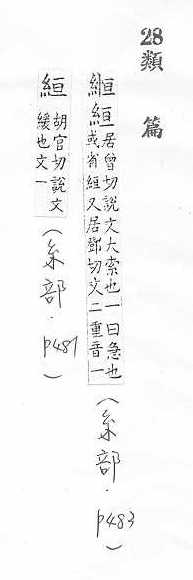 28類篇
緪絙居曾切說文大索也一曰急也
或省絙又居鄧切文二重音一（糸部．p483）
絙胡官切說文
緩也文一（糸部．p481）